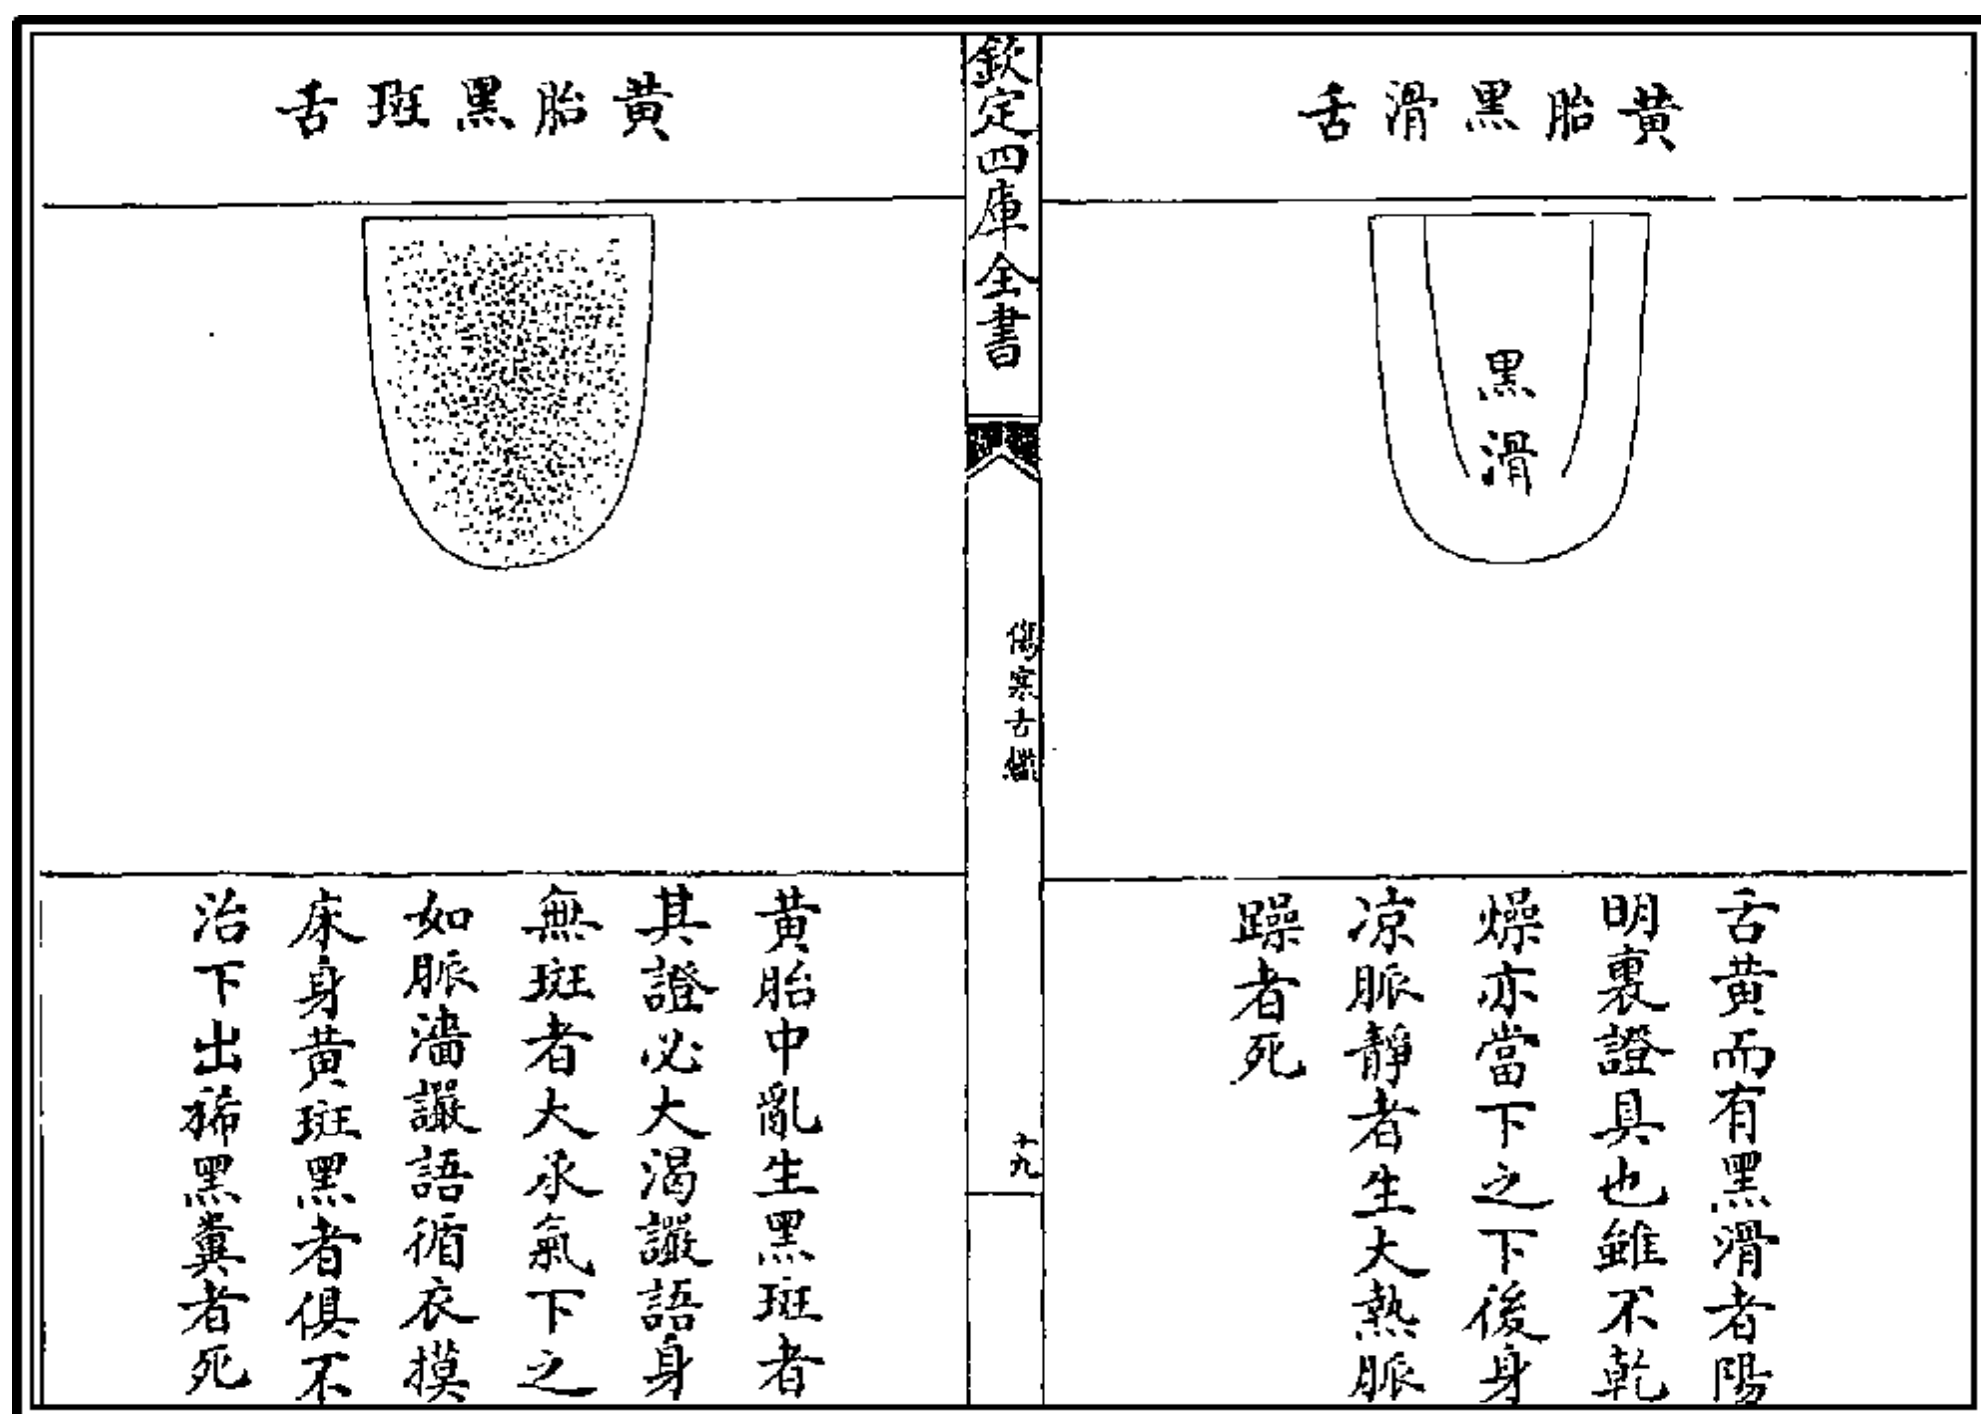 黄胎黒滑舌
黒滑
舌黄而有黒滑者陽
明裏證具也雖不乾
燥亦當下之下後身
凉脈靜者生大熱脈
躁者死
欽定四庫全書
傷寒舌鑑
十九
黄胎黒斑舌
黄胎中亂生黒斑者
其證必大渴讝語身
無斑者大承氣下之
如脈濇讝語循衣摸
床身黄斑黒者俱不
治下出稀黒糞者死